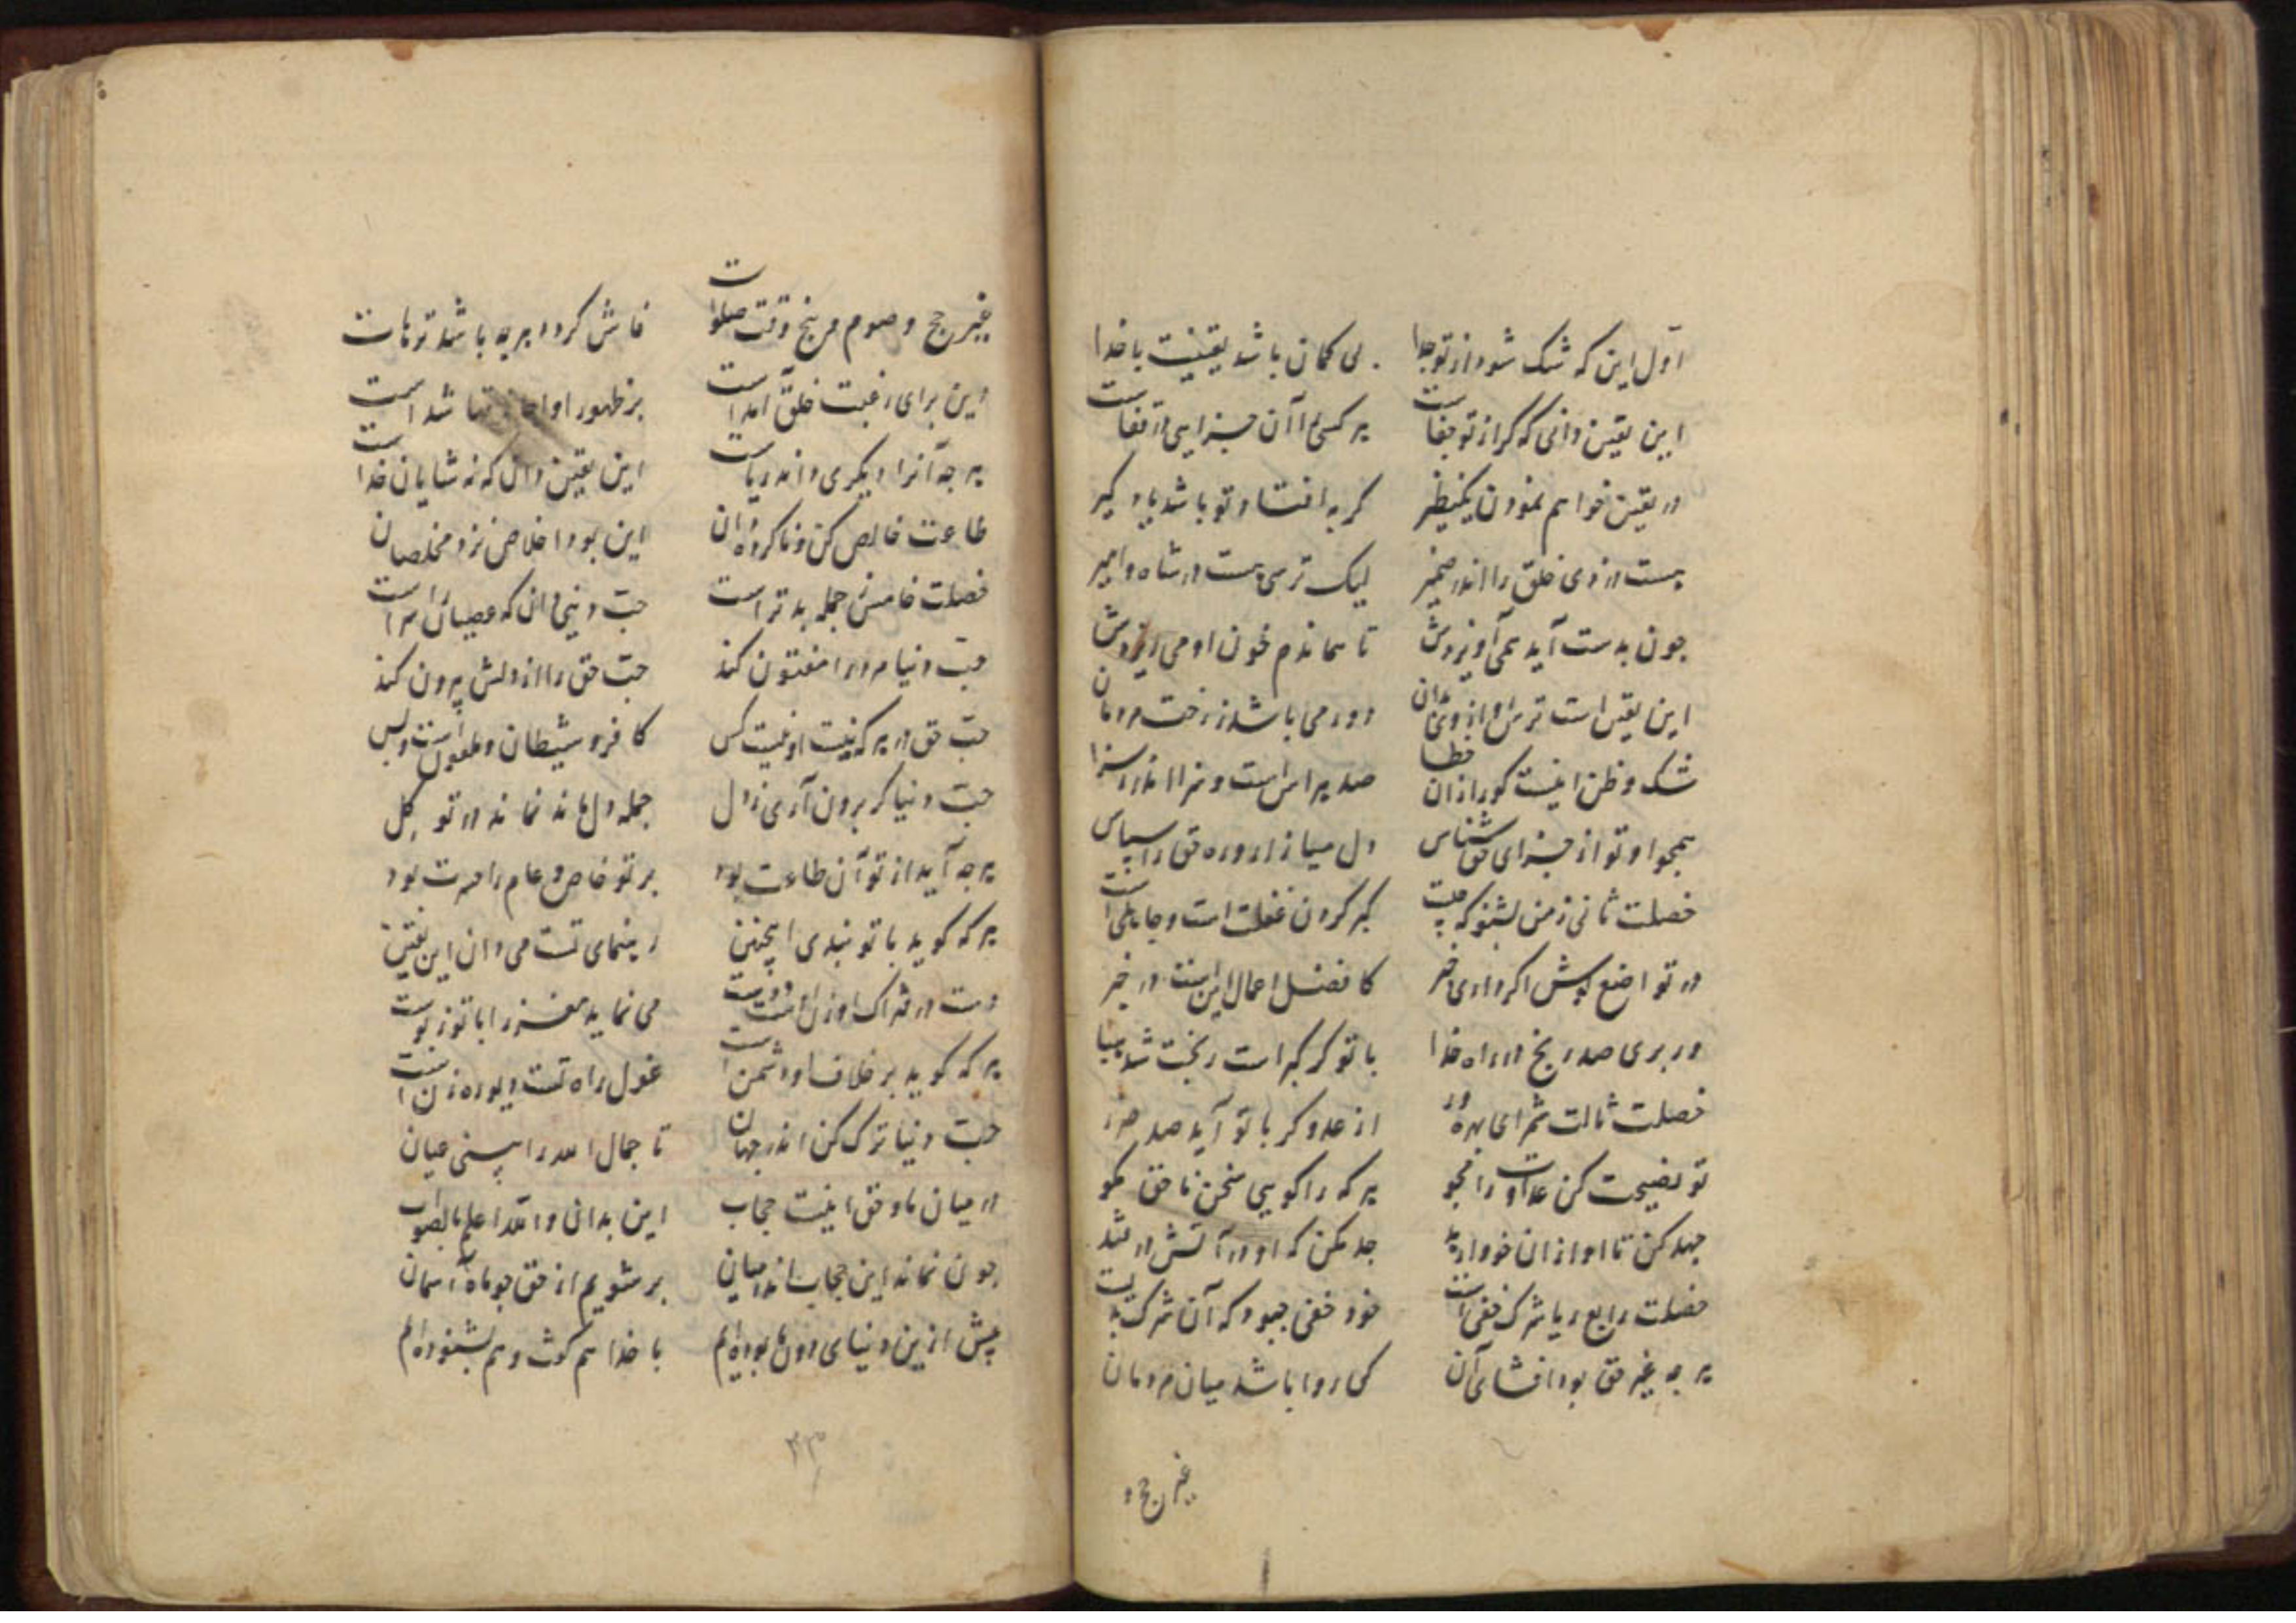 اول این که شک شود از تو جدا
بی کمان باشد یقینت با خدا
این یقین دانی که کر از تو جفاست
هر کسی را آن جزایی در قفاست
در یقین خواهم نمودن یکنظر
کر به افتد تو باشد یاد کیر
هست دزدی خلق را اندر ضمیر
لیک ترسی هست در شاه و امیر
چون بدست آید همی آویزدش
تا بماندم خون او می ریزدش
این یقین است ترس او از وی بدان
دور می باشد ز رخت مردمان
شک و ظن اینست کورا زان خطا
صد هراس است و نرا اندر سزا
همچو او تو از جزای حق شناس
دل میازار و ره حق را سپاس
خصلت ثانی ز من بشنو که چیست
کبر کردن غفلت است و جاهلیست
در تواضع پیش اکر داری خبر
کافضل اعمال این است در خبر
ور بری صد رنج در راه خدا
با تو کر کبر است رنجت شد هبا
خصلت ثالث شر ای بهره ور
از عدو کر با تو آید صد ضرر
تو نصیحت کن عداوت را مجو
هر که را کویی سخن ناحق مکو
جهد کن تا او از ان خود وارهد
جد مکن که او در آتش در فتد
خصلت رابع ریا شرک خفی است
خود خفی چبود که آن شرک
هر چه غیر حق بود افشای آن
کی روا باشد میان مردمان
غیر حج و
غیر حج و صوم و پنج وقت صلوات
فاش کردد هر چه باشد ترهات
این برای رغبت خلق آمد است
بر ظهور او شد است
هر چه آنرا دیکری داند ریاست
این یقین دان که نه شایان خداست
طاعت خالص کن و ناکرده دان
این بود اخلاص نزد مخلصان
خصلت خامس ز جمله بدتر است
حب دنیی دان که عصیان را سر است
حب دنیا مرد را مفتون کند
حب حق را از دلش بیرون کند
حب حق در هر که نیست او نیست کس
کافر و شیطان و ملعون است و بس
حب دنیا کر برون آری ز دل
جمله دل ماند نماند در تو کل
هر چه آید از تو آن طاعت بود
بر تو خاص و عام را حرمت بود
هر که کوید با تو پندی اینچنین
رهنمای تست می دان این یقین
دست در فتراک او زن دوست
می نماید مغز را با تو ز پوست
هر که کوید بر خلاف او دشمن است
غول راه تست و دیو ره زن است
حب دنیا ترک کن اندر جهان
تا جمال الله را بینی عیان
در میان ما و حق اینست حجاب
این بدان و الله اعلم بالصواب
چون نماند این حجاب اندر میان
بر شویم از حق چو ماه آسمان
پیش ازین دنیای دون ما بوده ایم
با خدا هم کوش و هم بشنوده ایم
۴۳